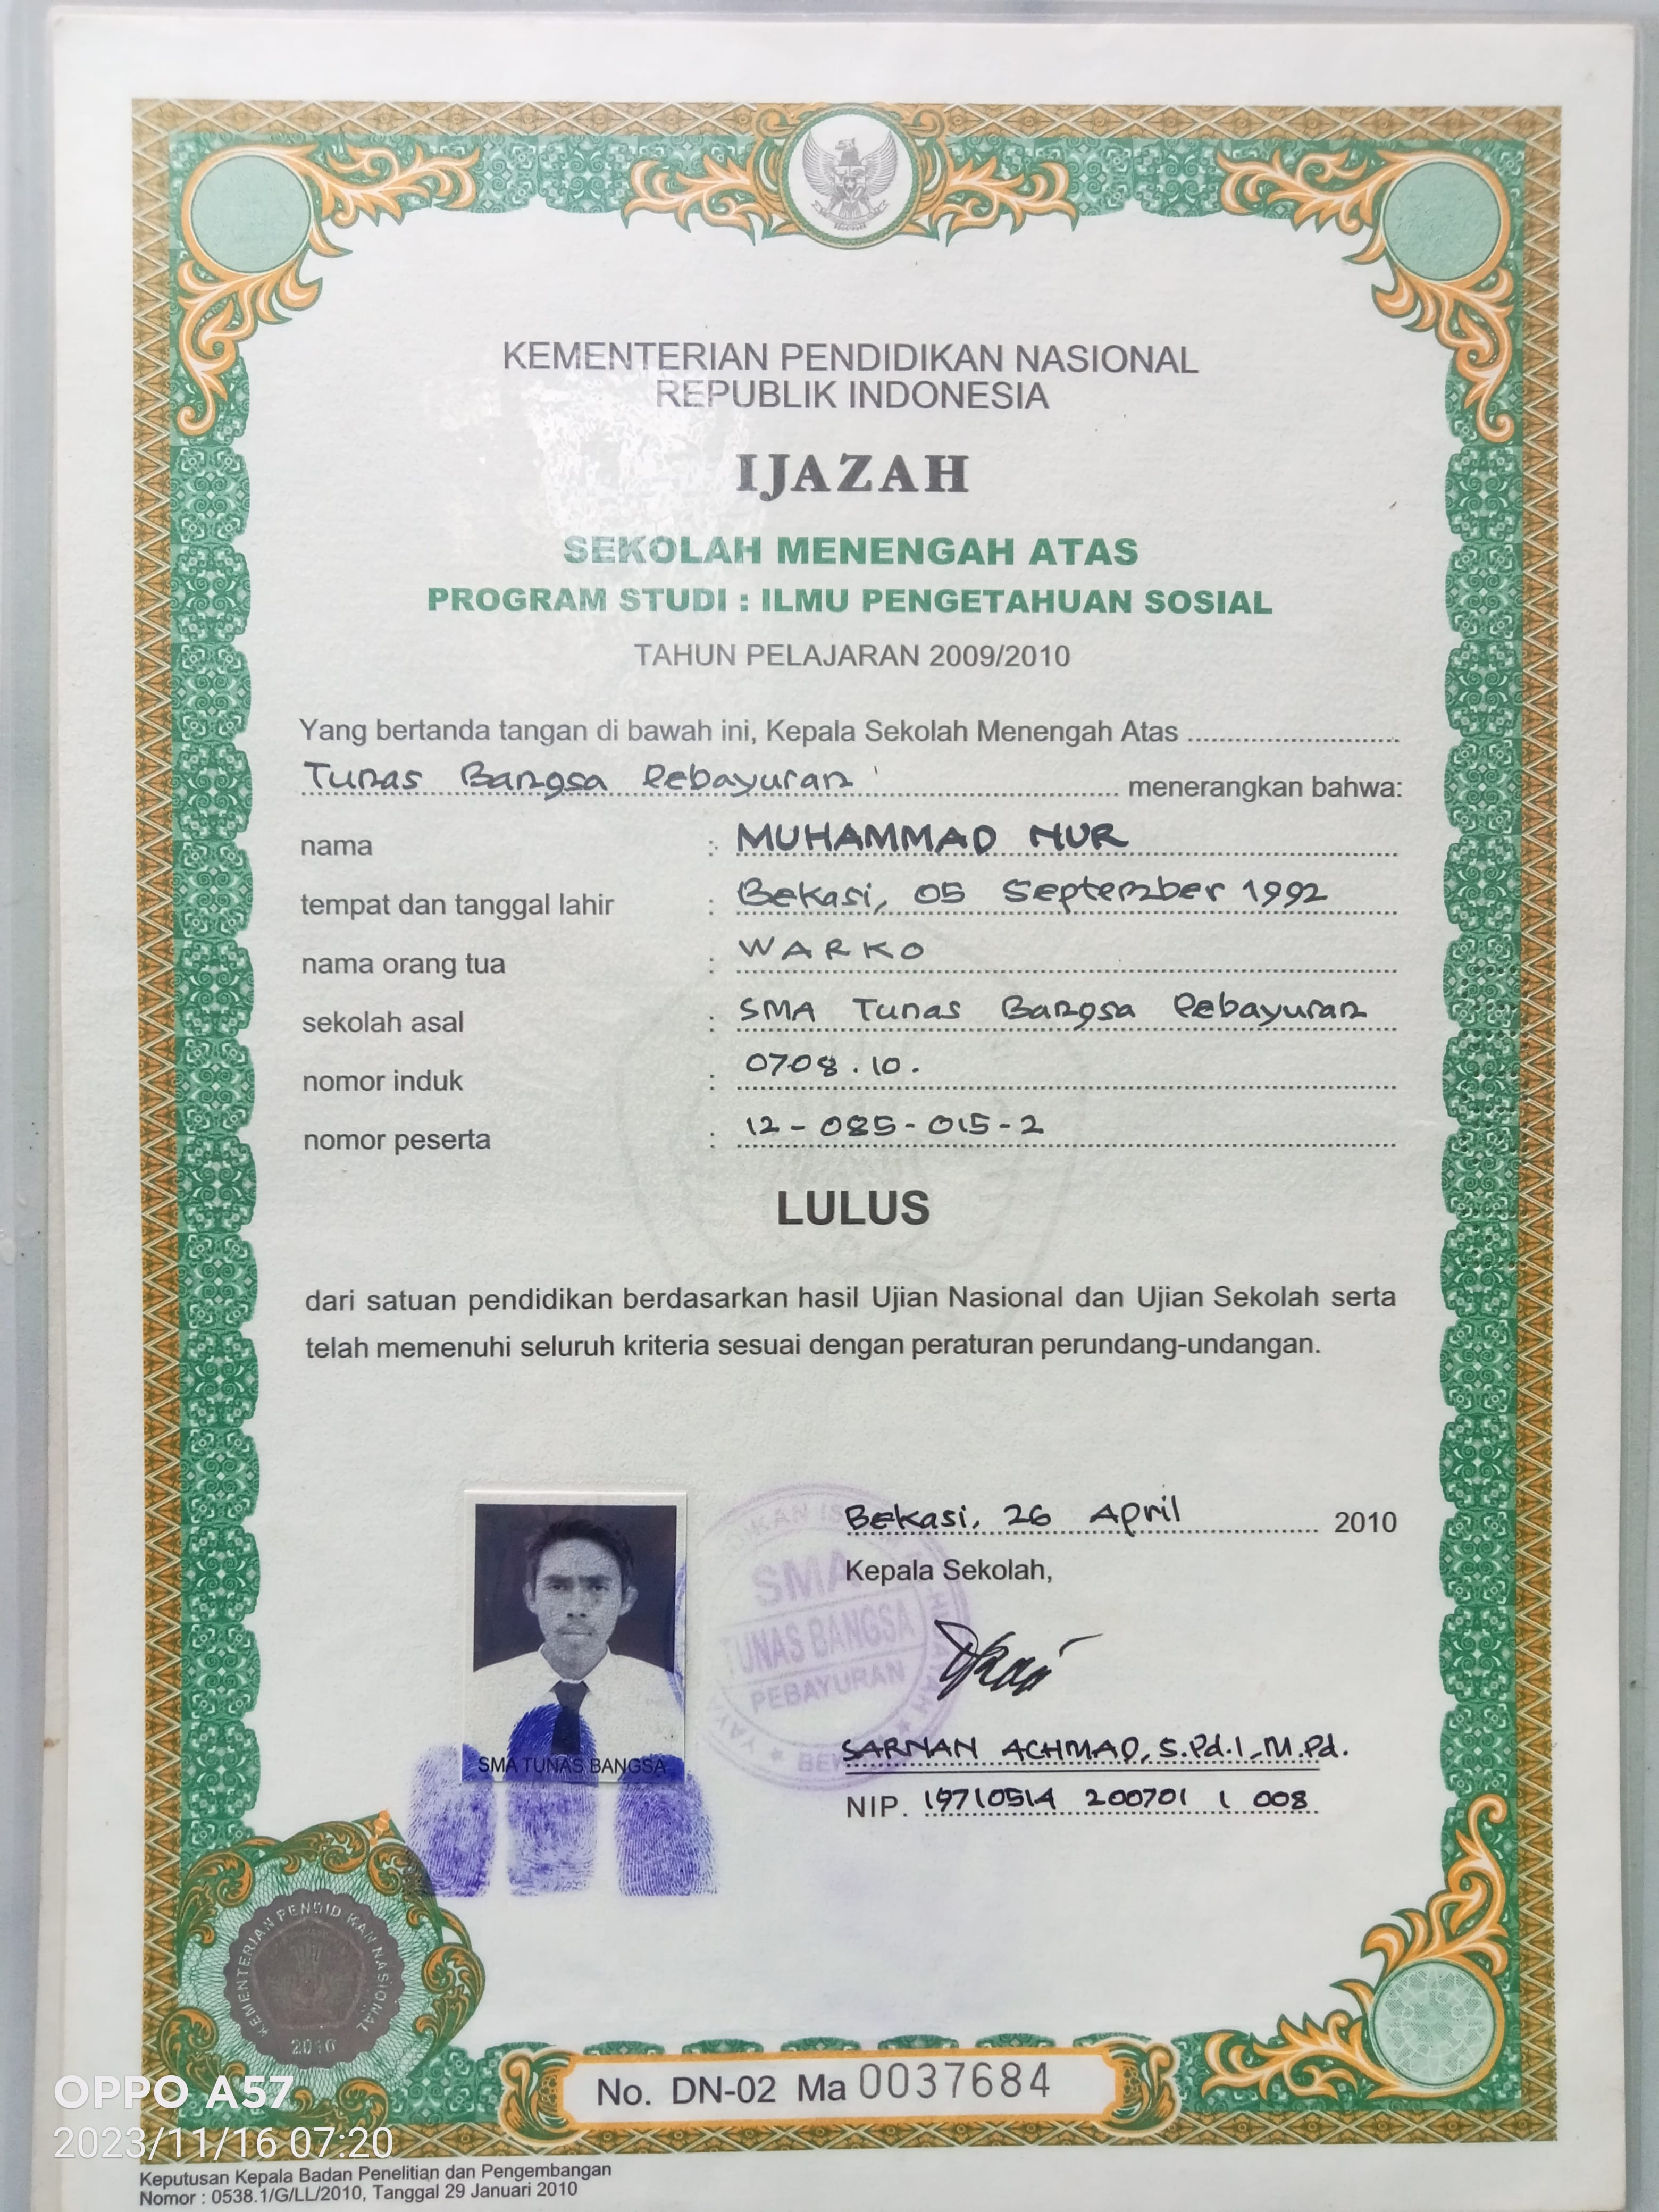 KEMENTERIAN PENDIDIKAN NASIONAL
REPUBLIK INDONESIA
IJAZAH
SEKOLAH MENENGAH ATAS
PROGRAM STUDI : ILMU PENGETAHUAN SOSIAL
TAHUN PELAJARAN 2009/2010
Yang bertanda tangan di bawah ini, Kepala Sekolah Menengah Atas
Tunas Bangsa Pebayuran menerangkan bahwa:
nama : MUHAMMAD NUR
tempat dan tanggal lahir : Bekasi, 05 September 1992
nama orang tua : WARKO
sekolah asal : SMA Tunas Bangsa Pebayuran
nomor induk : 0708.10.
nomor peserta : 12-085-015-2
LULUS
dari satuan pendidikan berdasarkan hasil Ujian Nasional dan Ujian Sekolah serta
telah memenuhi seluruh kriteria sesuai dengan peraturan perundang-undangan.
Bekasi, 26 April 2010
Kepala Sekolah,
SMA
TUNAS BANGSA
PEBAYURAN
SMA TUNAS BANGSA
SARNAN ACHMAD, S.Pd.I, M.Pd.
NIP. 19710514 200701 1 008
KEMENTERIAN PENDIDIKAN NASIONAL
2010
No. DN-02 Ma 0037684
OPPO A57
2023/11/16 07:20
Keputusan Kepala Badan Penelitian dan Pengembangan
Nomor : 0538.1/G/LL/2010, Tanggal 29 Januari 2010